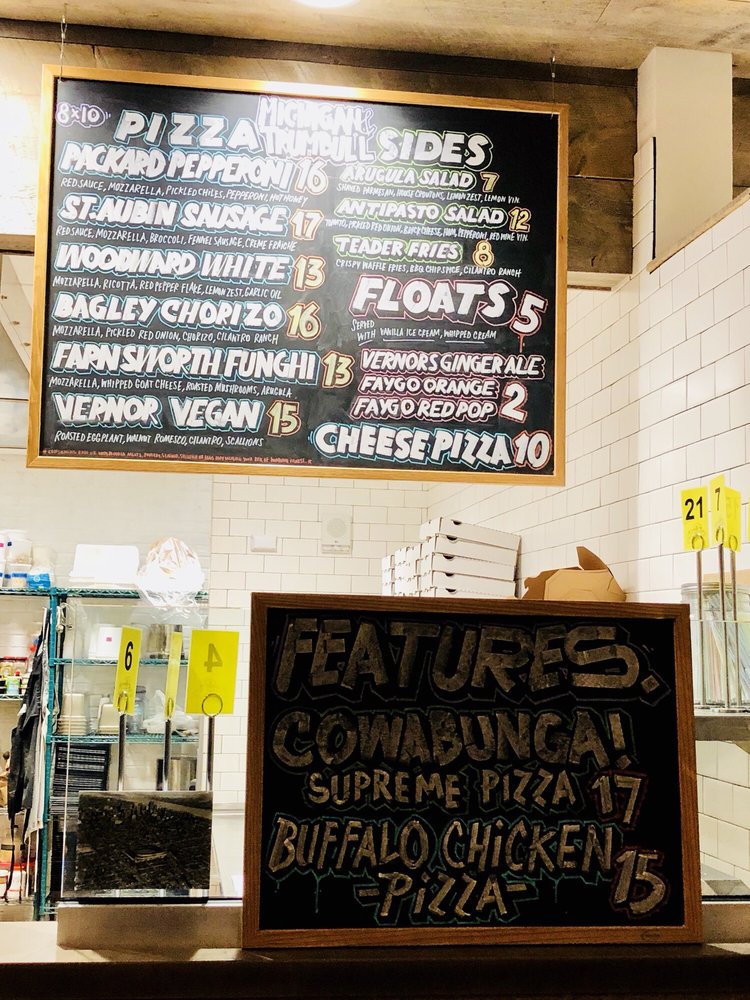 8x10
PIZZA
MICHIGAN &
TRUMBULL
PACKARD PEPPERONI 16
RED SAUCE, MOZZARELLA, PICKLED CHILES, PEPPERONI, HOT HONEY
ST. AUBIN SAUSAGE 17
RED SAUCE, MOZZARELLA, BROCCOLI, FENNEL SAUSAGE, CREME FRAICHE
WOODWARD WHITE 13
MOZZARELLA, RICOTTA, RED PEPPER FLAKE, LEMON ZEST, GARLIC OIL
BAGLEY CHORIZO 16
MOZZARELLA, PICKLED RED ONION, CHORIZO, CILANTRO RANCH
FARNSWORTH FUNGHI 13
MOZZARELLA, WHIPPED GOAT CHEESE, ROASTED MUSHROOMS, ARUGULA
VERNOR VEGAN 15
ROASTED EGGPLANT, WALNUT ROMESCO, CILANTRO, SCALLIONS
SIDES
ARUGULA SALAD 7
SHAVED PARMESAN, HOUSE CROUTONS, LEMON ZEST, LEMON VIN.
ANTIPASTO SALAD 12
TOMATO, PICKLED RED ONION, BRICK CHEESE, HAM, PEPPERONI, RED WINE VIN.
TEADER FRIES 8
CRISPY WAFFLE FRIES, BBQ CHIP SPICE, CILANTRO RANCH
FLOATS 5
SERVED
WITH VANILLA ICE CREAM, WHIPPED CREAM
VERNORS GINGER ALE
FAYGO ORANGE 2
FAYGO RED POP
CHEESE PIZZA 10
21
7
6
4
FEATURES.
COWABUNGA!
SUPREME PIZZA 17
BUFFALO CHICKEN
-PIZZA- 15